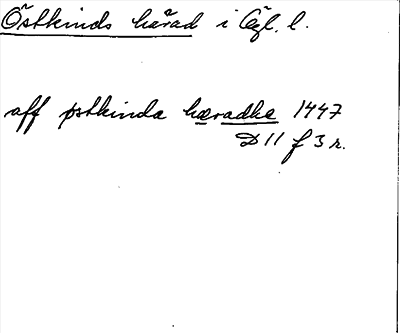 Östkinds härad i Ögl. l.
aff østkinda hæradhe 1447
D 11 f 3 r.